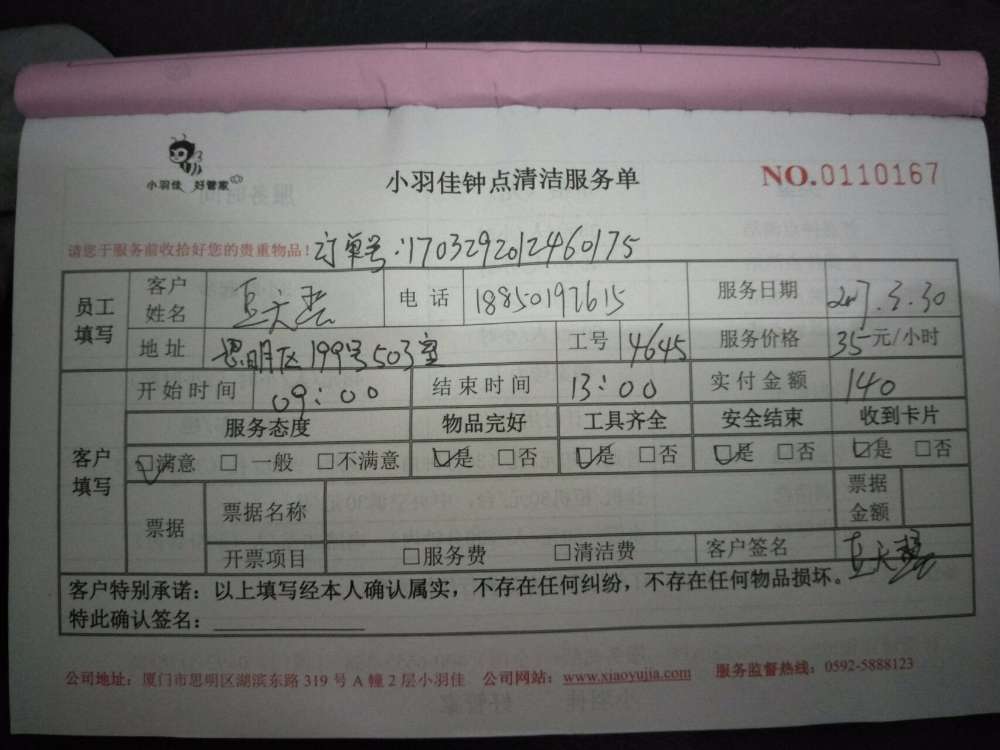 小羽佳 好管家
小羽佳钟点清洁服务单
NO.0110167
请您于服务前收拾好您的贵重物品!
订单号:170329012460175
员工填写 客户姓名 电话 18850197615 服务日期 2017.3.30
地址 思明区199号503室 工号 4645 服务价格 35元/小时
客户填写 开始时间 09:00 结束时间 13:00 实付金额 140
服务态度 物品完好 工具齐全 安全结束 收到卡片
☑满意 □一般 □不满意 ☑是 □否 ☑是 □否 ☑是 □否 ☑是 □否
票据 票据名称 票据金额
开票项目 □服务费 □清洁费 客户签名
客户特别承诺:以上填写经本人确认属实,不存在任何纠纷,不存在任何物品损坏。
特此确认签名:
公司地址:厦门市思明区湖滨东路319号A幢2层小羽佳 公司网站:www.xiaoyujia.com 服务监督热线:0592-5888123